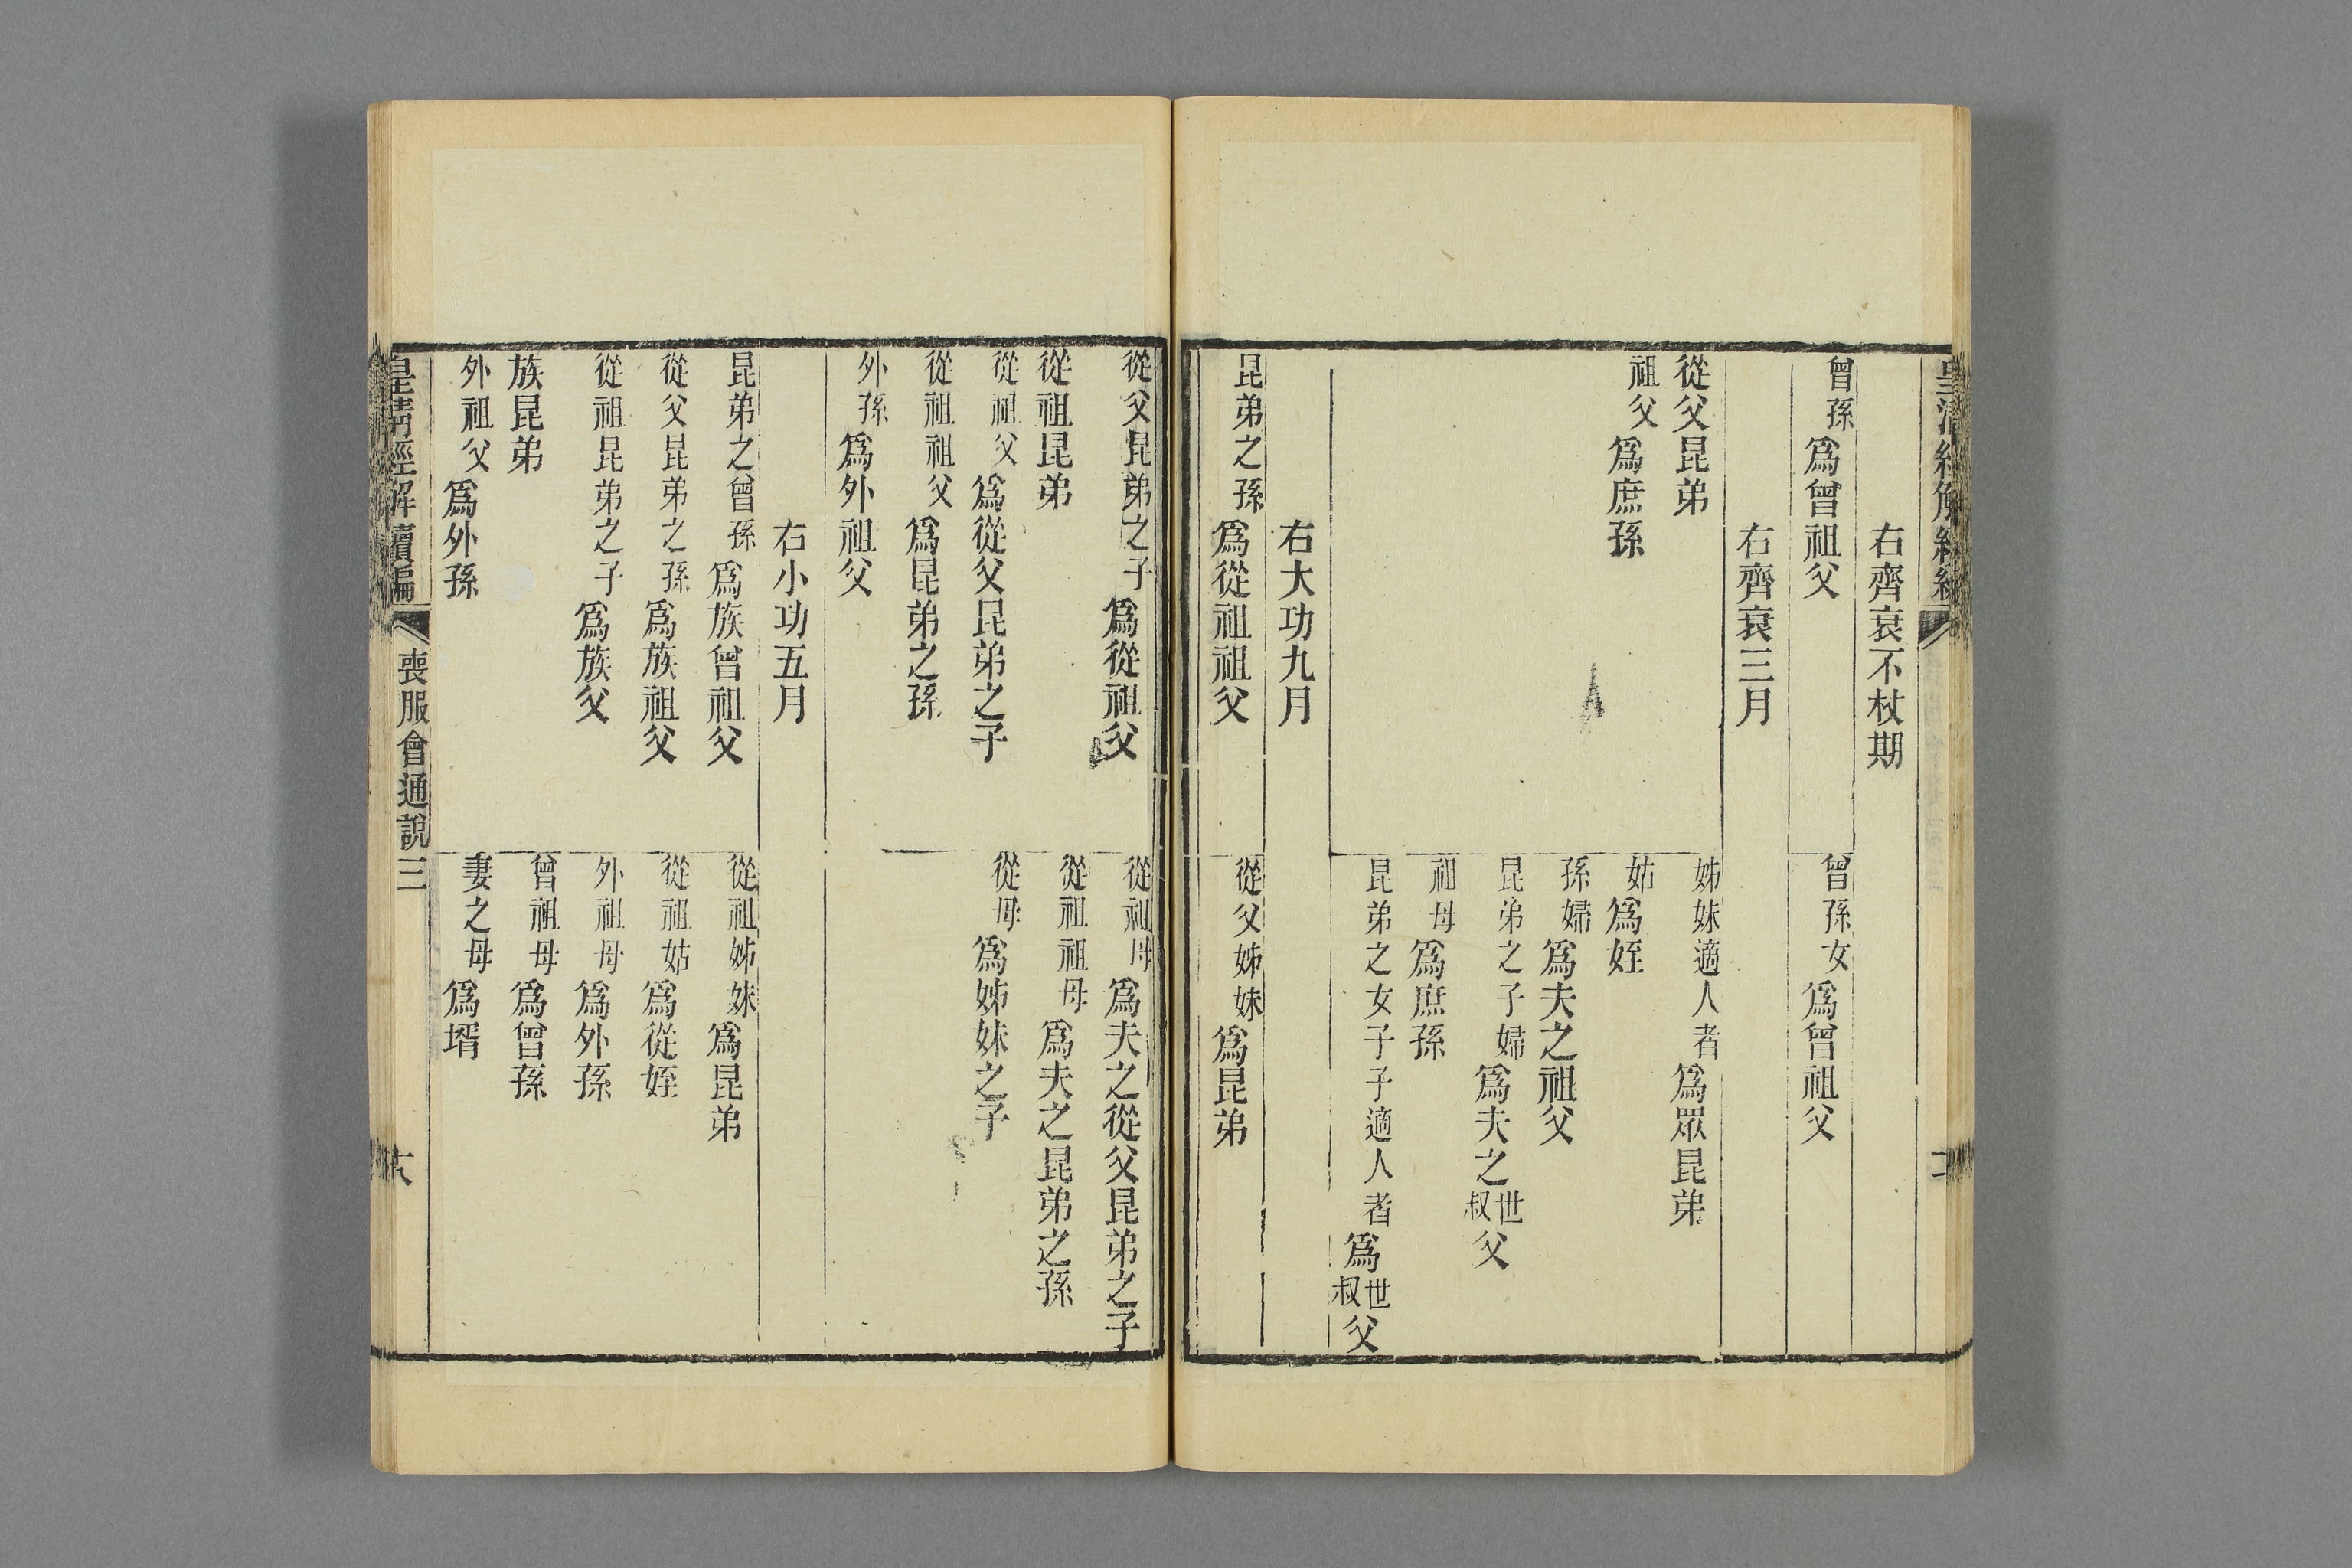 右齊衰不杖期
曾孫爲曾祖父
曾孫女爲曾祖父
右齊衰三月
從父昆弟
姊妹適人者爲眾昆弟
祖父爲庶孫
姑爲姪
孫婦爲夫之祖父
昆弟之子婦爲夫之世叔父
祖母爲庶孫
昆弟之女子子適人者爲世叔父
右大功九月
昆弟之孫爲從祖祖父
從父姊妹爲昆弟
從父昆弟之子爲從祖父
從祖母爲夫之從父昆弟之子
從祖昆弟
從祖祖母爲夫之昆弟之孫
從祖父爲從父昆弟之子
從母爲姊妹之子
從祖祖父爲昆弟之孫
外孫爲外祖父
右小功五月
昆弟之曾孫爲族曾祖父
從祖姊妹爲昆弟
從父昆弟之孫爲族祖父
從祖姑爲從姪
從祖昆弟之子爲族父
外祖母爲外孫
族昆弟
曾祖母爲曾孫
外祖父爲外孫
妻之母爲壻
皇清經解續編
喪服會通說三